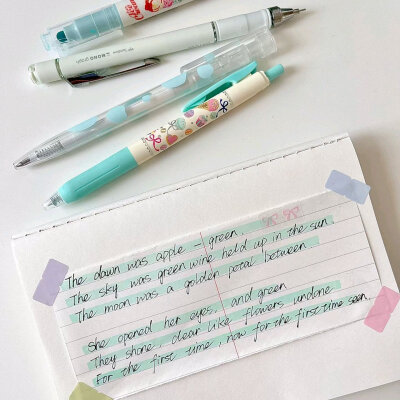 MONO graph
The dawn was apple – green
The sky was green wine held up in the sun
The moon was a golden petal between
She opened her eyes, and green
They shone, clear like flowers undone
For the first time, now for the first time seen.